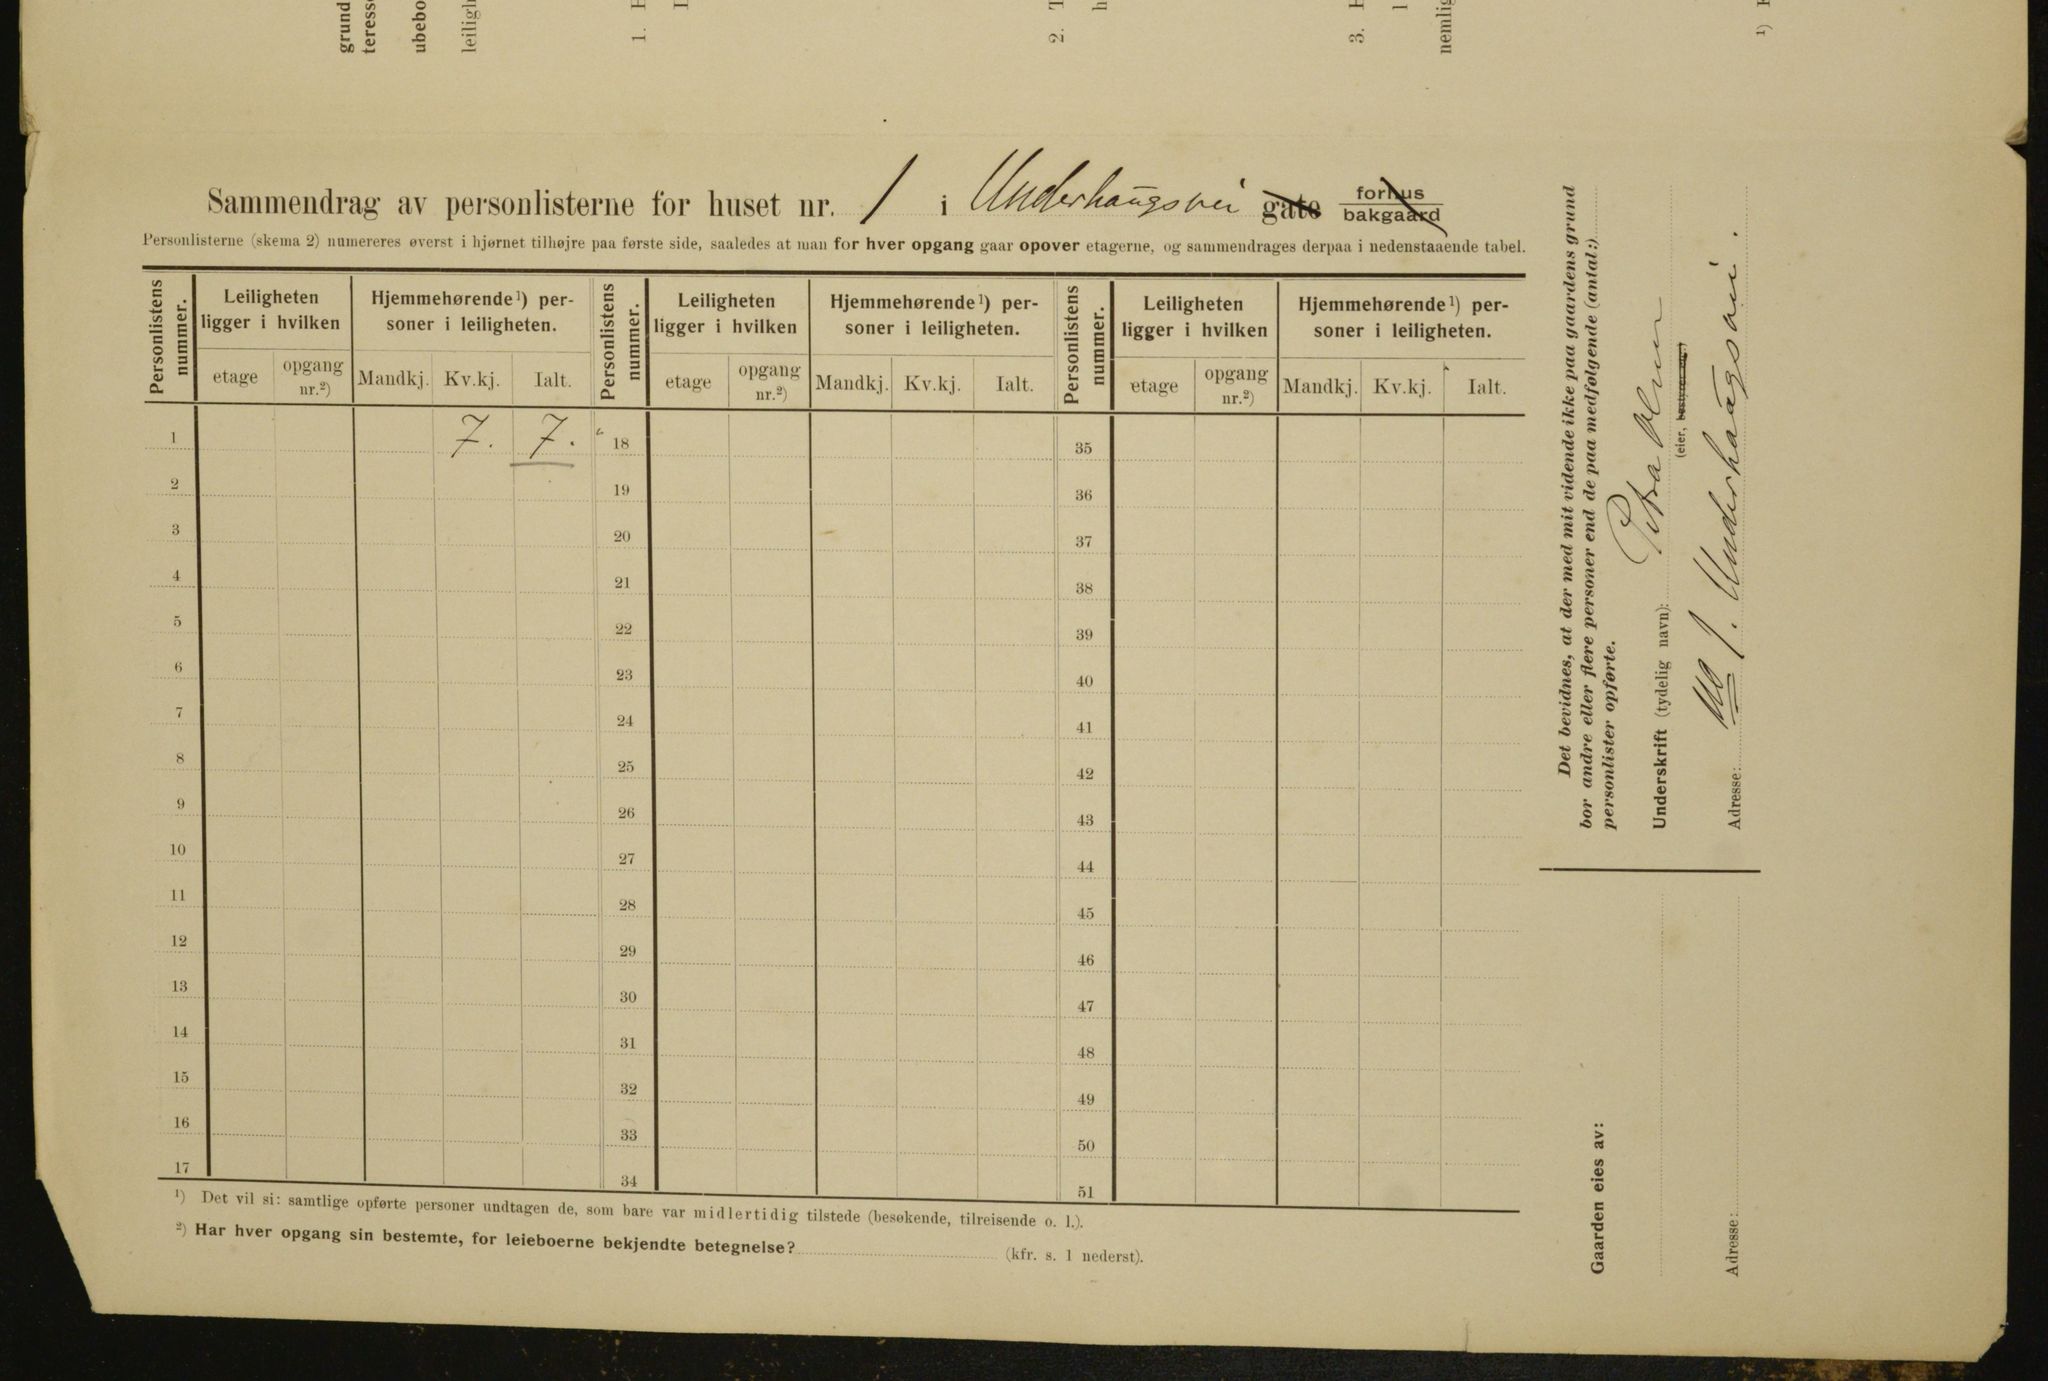 grund
teress
ubebo
leiligh
1. H
2. T
h
3. H
nemlig
¹) H
Sammendrag av personlisterne for huset nr. 1 i Underhaugsvei gate forhus
bakgaard
Personlisterne (skema 2) numereres øverst i hjørnet tilhøjre paa første side, saaledes at man for hver opgang gaar opover etagerne, og sammendrages derpaa i nedenstaaende tabel.
Personlistens nummer. Leiligheten ligger i hvilken Hjemmehørende¹) personer i leiligheten. Personlistens nummer. Leiligheten ligger i hvilken Hjemmehørende¹) personer i leiligheten. Personlistens nummer. Leiligheten ligger i hvilken Hjemmehørende¹) personer i leiligheten.
etage opgang nr.²) Mandkj. Kv.kj. Ialt. etage opgang nr.²) Mandkj. Kv.kj. Ialt. etage opgang nr.²) Mandkj. Kv.kj. Ialt.
1 7. 7. 18 35
2 19 36
3 20 37
4 21 38
5 22 39
6 23 40
7 24 41
8 25 42
9 26 43
10 27 44
11 28 45
12 29 46
13 30 47
14 31 48
15 32 49
16 33 50
17 34 51
¹) Det vil si: samtlige opførte personer undtagen de, som bare var midlertidig tilstede (besøkende, tilreisende o. l.).
²) Har hver opgang sin bestemte, for leieboerne bekjendte betegnelse? (kfr. s. 1 nederst).
Det bevidnes, at der med mit vidende ikke paa gaardens grund
bor andre eller flere personer end de paa medfølgende (antal:)
personlister opførte.
Underskrift (tydelig navn): Petra
(eier, bestyrer o. l.)
Adresse: 1. Underhaugsvei.
Gaarden eies av:
Adresse: